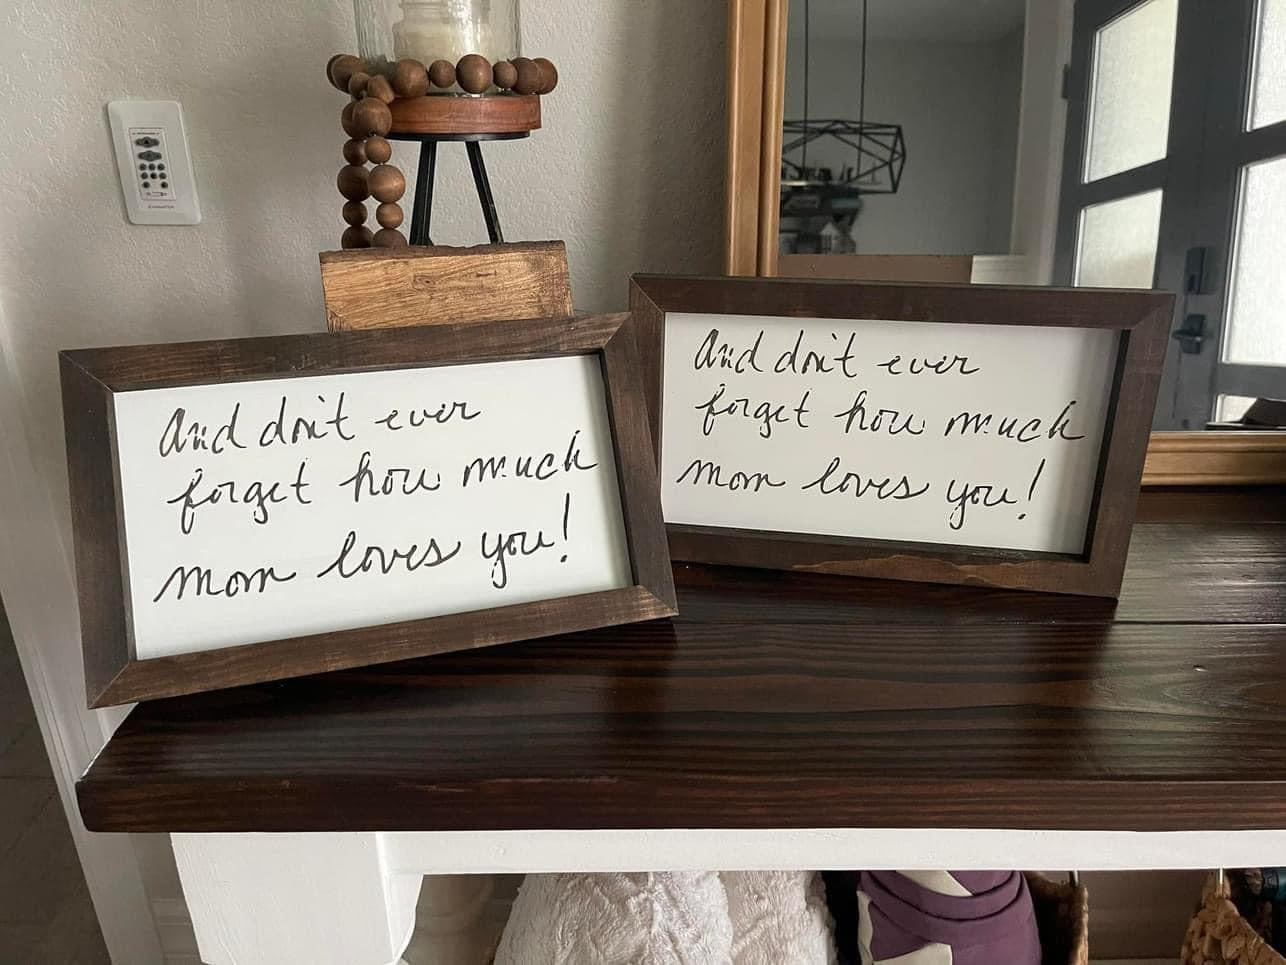 And don't ever
forget how much
mom loves you!
And don't ever
forget how much
mom loves you!